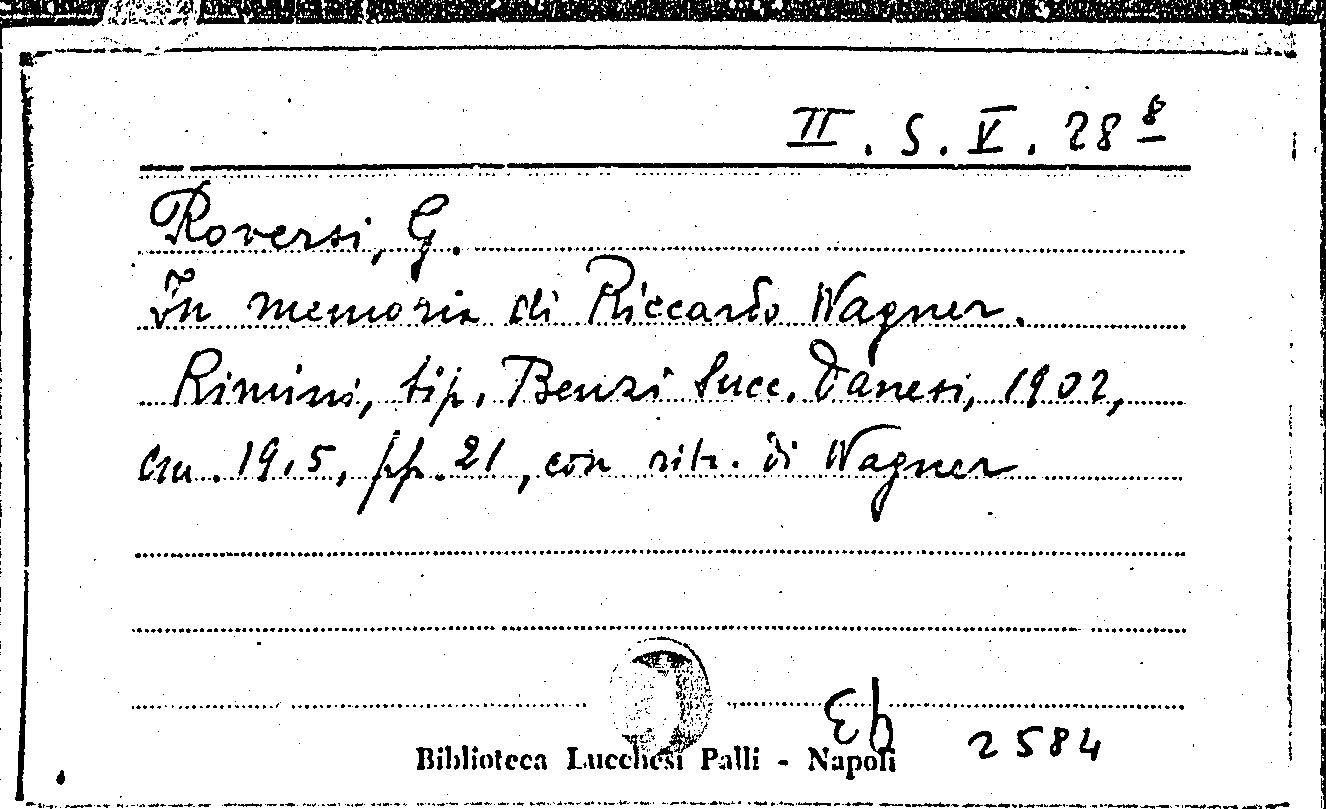 II. S. V. 28 8
Roversi, G.
In memoria di Riccardo Wagner.
Rimini, tip. Benzi Succ. Danesi, 1902,
cm. 19,5, pp. 21, con ritr. di Wagner
2584
Biblioteca Lucchesi Palli - Napoli